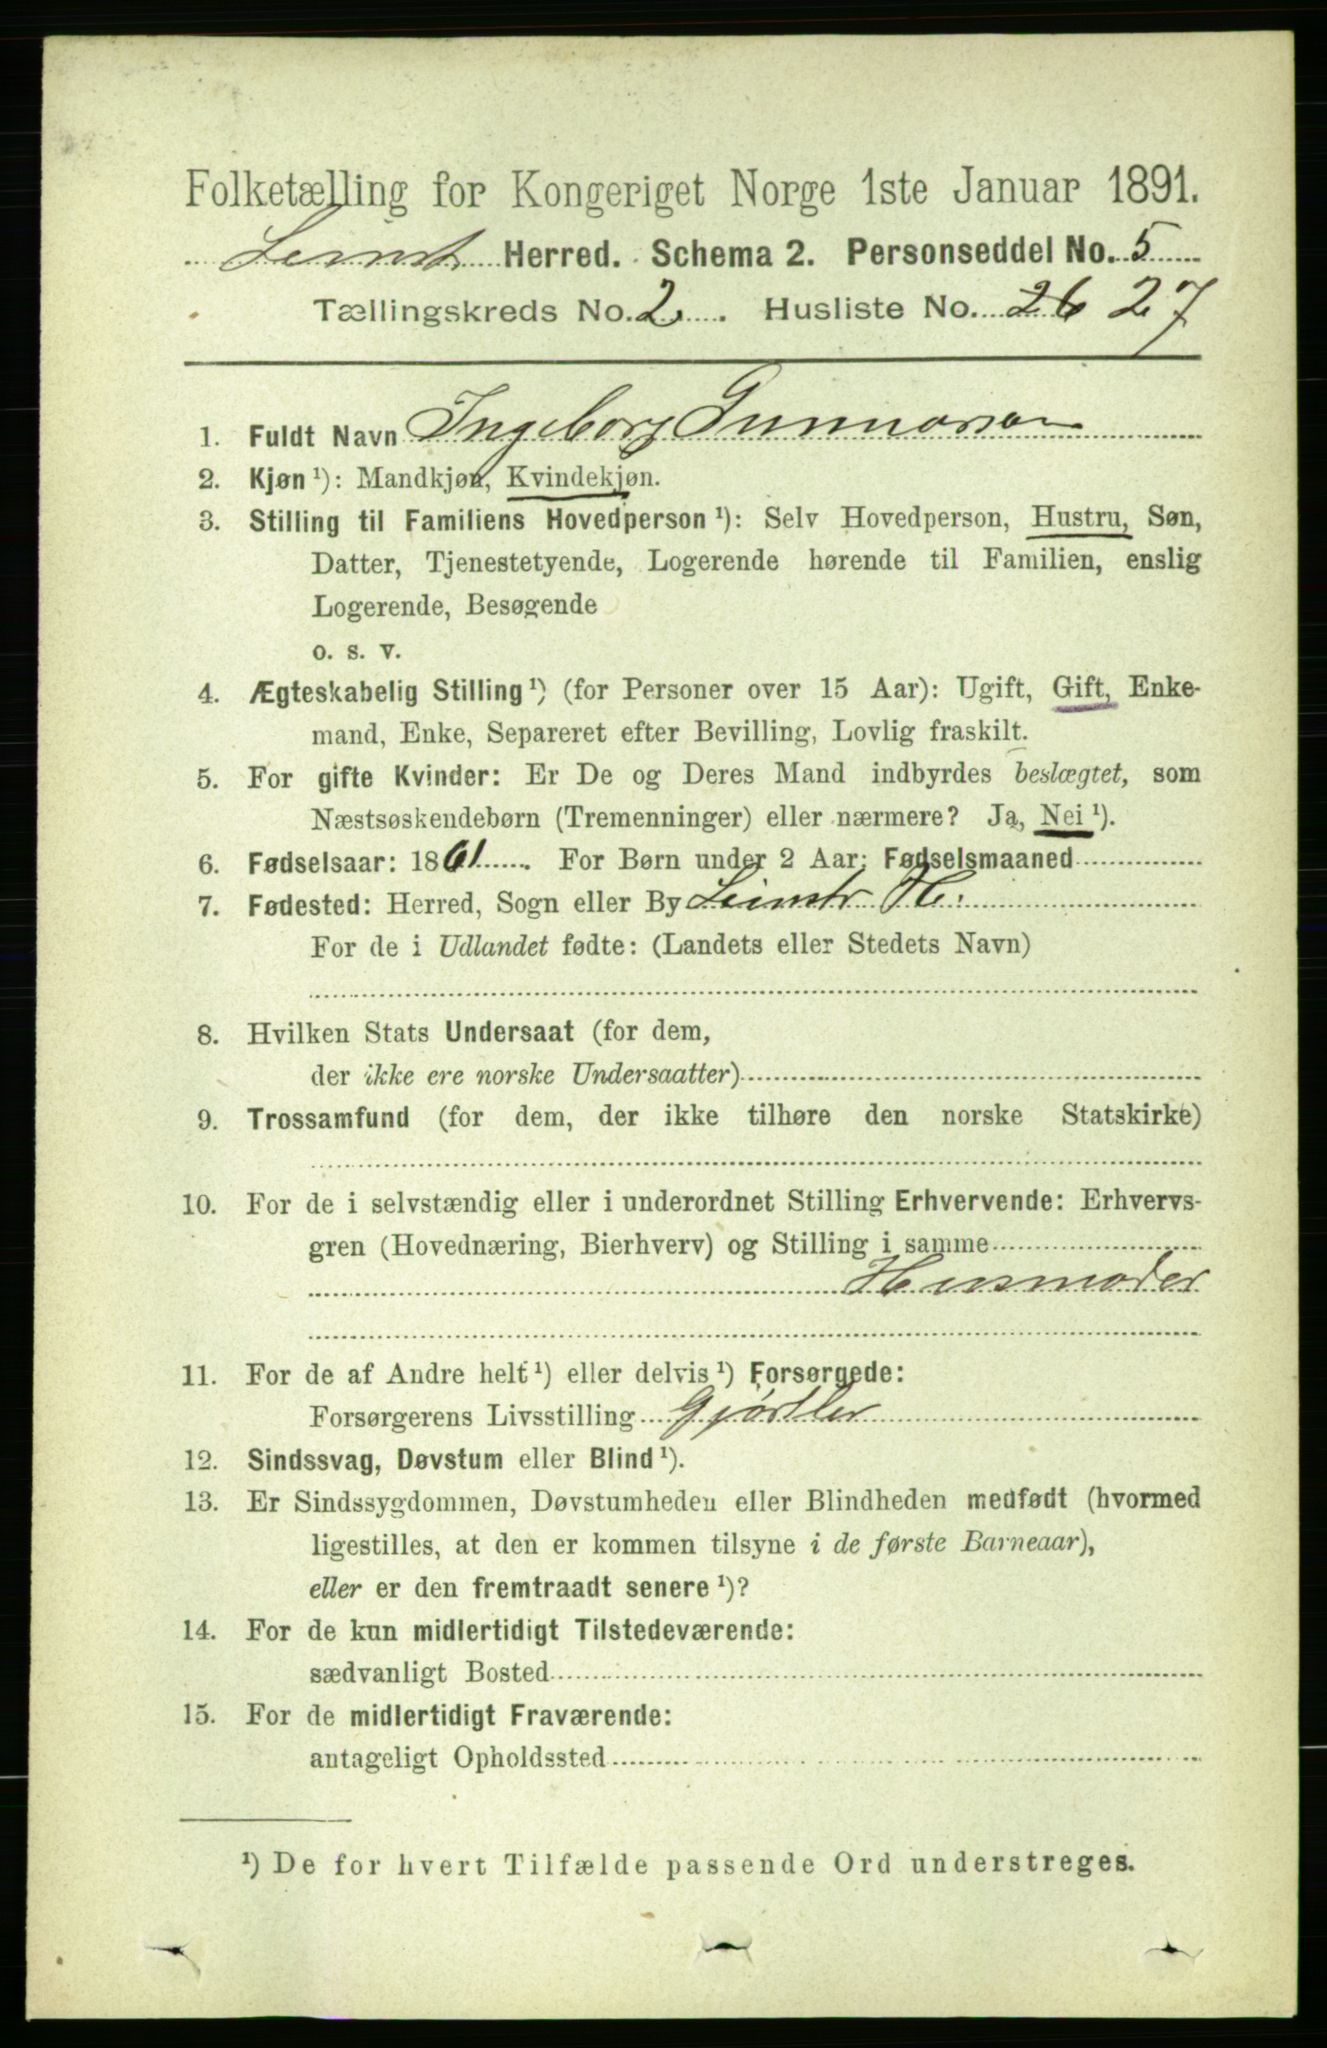 Folketælling for Kongeriget Norge 1ste Januar 1891.
Leinst. Herred. Schema 2. Personseddel No. 5
Tællingskreds No. 2. Husliste No. 26 27
1. Fuldt Navn Ingeborg Gunnarson
2. Kjøn ¹): Mandkjøn, Kvindekjøn.
3. Stilling til Familiens Hovedperson ¹): Selv Hovedperson, Hustru, Søn,
Datter, Tjenestetyende, Logerende hørende til Familien, enslig
Logerende, Besøgende
o. s. v.
4. Ægteskabelig Stilling ¹) (for Personer over 15 Aar): Ugift, Gift, Enke-
mand, Enke, Separeret efter Bevilling, Lovlig fraskilt.
5. For gifte Kvinder: Er De og Deres Mand indbyrdes beslægtet, som
Næstsøskendebørn (Tremenninger) eller nærmere? Ja, Nei ¹).
6. Fødselsaar: 1861. For Børn under 2 Aar: Fødselsmaaned
7. Fødested: Herred, Sogn eller By Leinstr. H.
For de i Udlandet fødte: (Landets eller Stedets Navn)
8. Hvilken Stats Undersaat (for dem,
der ikke ere norske Undersaatter)
9. Trossamfund (for dem, der ikke tilhøre den norske Statskirke)
10. For de i selvstændig eller i underordnet Stilling Erhvervende: Erhvervs-
gren (Hovednæring, Bierhverv) og Stilling i samme
Husmoder
11. For de af Andre helt ¹) eller delvis ¹) Forsørgede:
Forsørgerens Livsstilling Gjørtler
12. Sindssvag, Døvstum eller Blind ¹).
13. Er Sindssygdommen, Døvstumheden eller Blindheden medfødt (hvormed
ligestilles, at den er kommen tilsyne i de første Barneaar),
eller er den fremtraadt senere ¹)?
14. For de kun midlertidigt Tilstedeværende:
sædvanligt Bosted
15. For de midlertidigt Fraværende:
antageligt Opholdssted
¹) De for hvert Tilfælde passende Ord understreges.